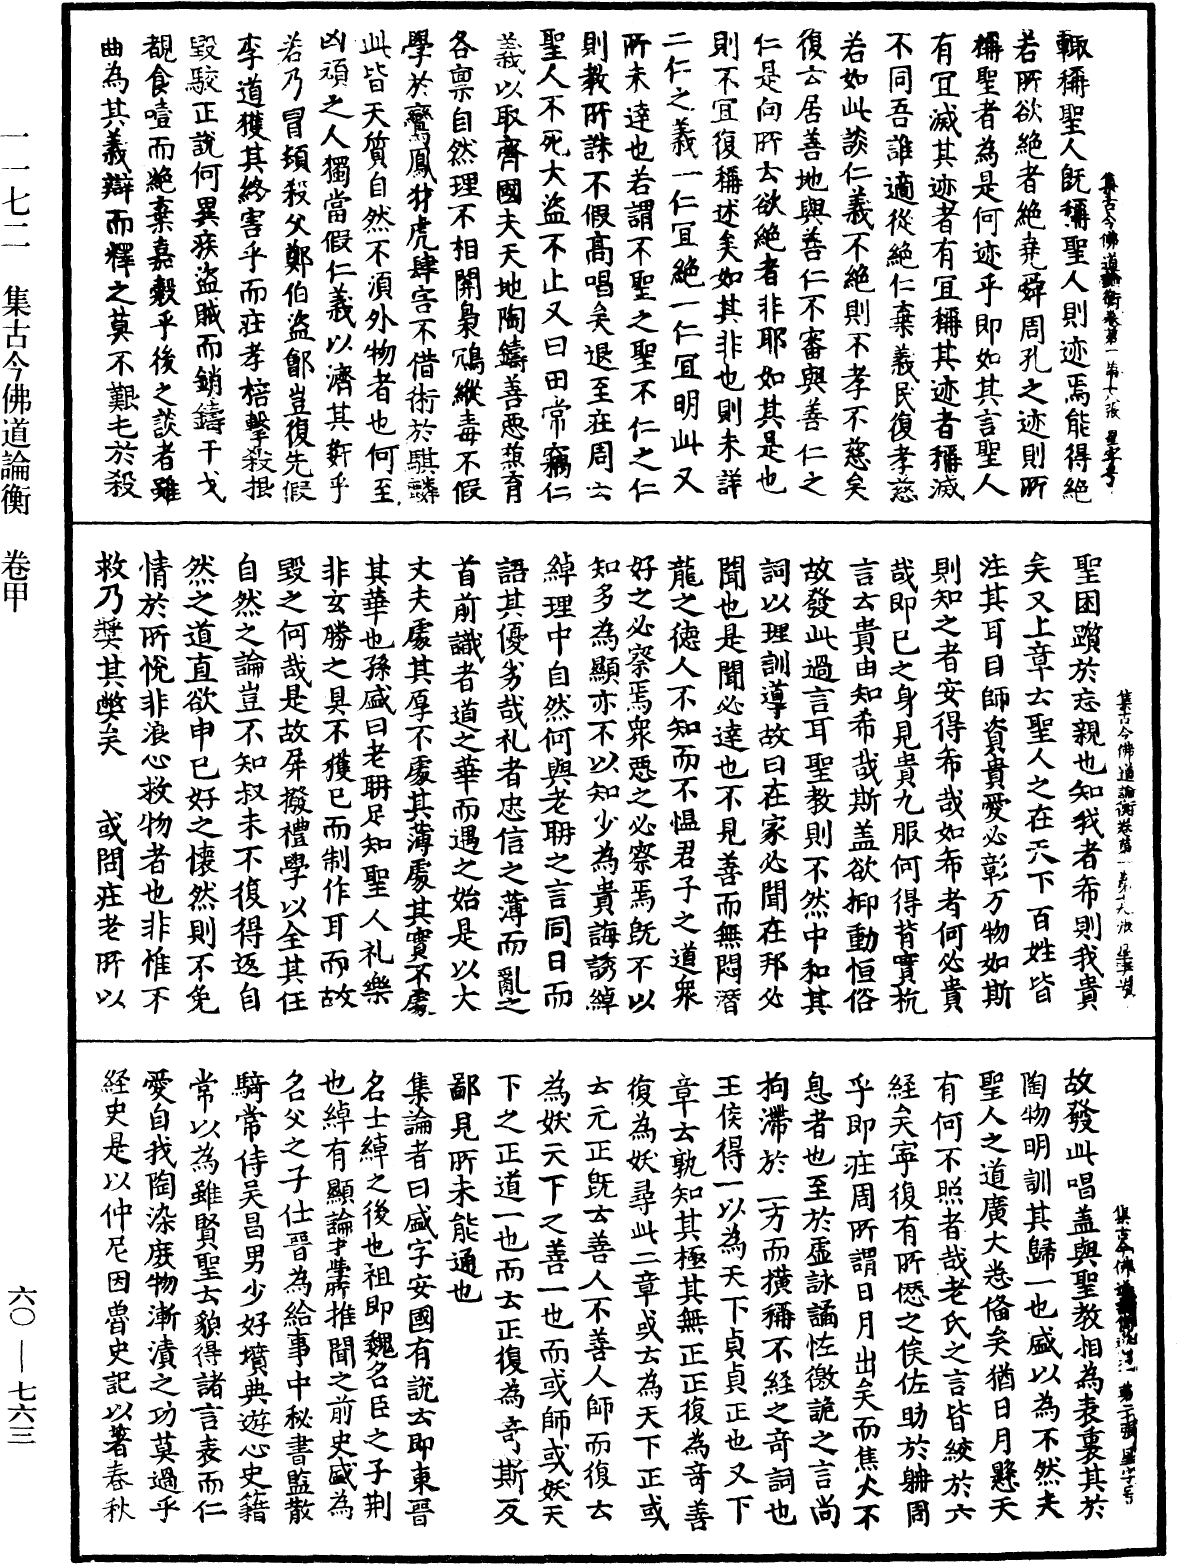 一一七二　集古今佛道論衡　卷甲
六〇—七六三
集古今佛道論衡卷第一　第十八張　星字号
輙稱聖人旣稱聖人則迹焉能得絕
若所欲絕者絕堯舜周孔之迹則所
稱聖者為是何迹乎即如其言聖人
有宜滅其迹者有宜稱其迹者稱滅
不同吾誰適從絕仁棄義民復孝慈
若如此談仁義不絕則不孝不慈矣
復云居善地與善仁不審與善仁之
仁是向所云欲絕者非耶如其是也
則不宜復稱述矣如其非也則未詳
二仁之義一仁宜絕一仁宜明此又
所未達也若謂不聖之聖不仁之仁
則教所誅不假高唱矣退至在周云
聖人不死大盜不止又曰田常竊仁
義以取齊國夫天地陶鑄善惡兼育
各禀自然理不相關梟鴆縱毒不假
學於鸞鳳豺虎肆害不借術於騏驎
此皆天質自然不須外物者也何至
凶頑之人獨當假仁義以濟其姧乎
若乃冒頓殺父鄭伯盜鄶豈復先假
李道獲其終害乎而莊李掊擊殺抵
毀駮正說何異疾盜賊而銷鑄干戈
覩食噎而絕棄嘉穀乎後之談者雖
曲為其義辯而釋之莫不艱屯於殺
集古今佛道論衡卷第一　第十九張　星字號
聖困躓於忘親也知我者希則我貴
矣又上章云聖人之在天下百姓皆
注其耳目師資貴愛必彰万物如斯
則知之者安得希哉如希者何必貴
哉即已之身見貴九服何得背實抗
言云貴由知希哉斯盖欲抑動恒俗
故發此過言耳聖教則不然中和其
詞以理訓導故曰在家必聞在邦必
聞也是聞必達也不見善而無悶潛
龍之德人不知而不慍君子之道衆
好之必察焉衆惡之必察焉旣不以
知多為顯亦不以知少為貴誨誘綽
綽理中自然何與老聃之言同日而
語其優劣哉礼者忠信之薄而亂之
首前識者道之華而遇之始是以大
丈夫處其厚不處其薄處其實不處
其華也孫盛曰老聃足知聖人礼樂
非玄勝之具不獲已而制作耳而故
毀之何哉是故屏撥禮學以全其任
自然之論豈不知叔末不復得返自
然之道直欲申已好之懷然則不免
情於所悅非浪心救物者也非惟不
救乃獎其弊矣　　或問莊老所以
故發此唱盖與聖教相為表裏其於
陶物明訓其歸一也盛以為不然夫
聖人之道廣大悉俻矣猶日月懸天
有何不照者哉老氏之言皆絞於六
經矣寧復有所愆之俟佐助於聃周
乎即莊周所謂日月出矣而焦火不
息者也至於虛詠譎怪徼詭之言尚
拘滯於一方而横稱不經之奇詞也
王侯得一以為天下貞貞正也又下
章云孰知其極其無正正復為奇善
復為妖尋此二章或云為天下正或
云元正旣云善人不善人師而復云
為妖天下之善一也而或師或妖天
下之正道一也而云正復為奇斯反
鄙見所未能通也
集論者曰盛字安國有說云即東晉
名士綽之後也祖即魏名臣之子荆
也綽有顯論才學所推聞之前史盛為
名父之子仕晉為給事中秘書監散
騎常侍吳昌男少好墳典遊心史籍
常以為雖賢聖去貌得諸言表而仁
愛自我陶染庶物漸漬之功莫過乎
經史是以仲尼因魯史記以著春秋